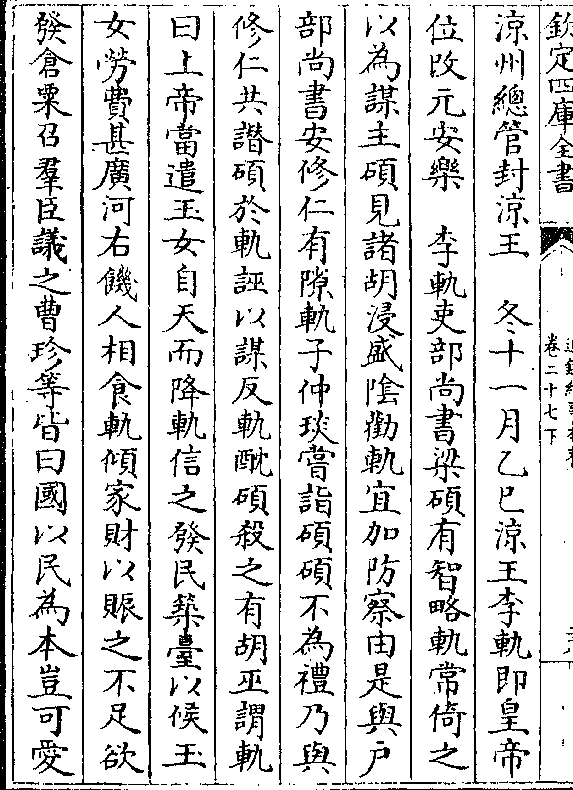 欽定四庫全書
卷二十七下
涼州總管封涼王　冬十一月乙巳涼王李軌即皇帝
位改元安樂　李軌吏部尚書梁碩有智略軌常倚之
以為謀主碩見諸胡浸盛陰勸軌宜加防察由是與戶
部尚書安修仁有隙軌子仲琰嘗詣碩碩不為禮乃與
修仁共譖碩於軌誣以謀反軌酖碩殺之有胡巫謂軌
曰上帝當遣玉女自天而降軌信之發民築臺以候玉
女勞費甚廣河右饑人相食軌傾家財以賑之不足欲
發倉粟召羣臣議之曹珍等皆曰國以民為本豈可愛